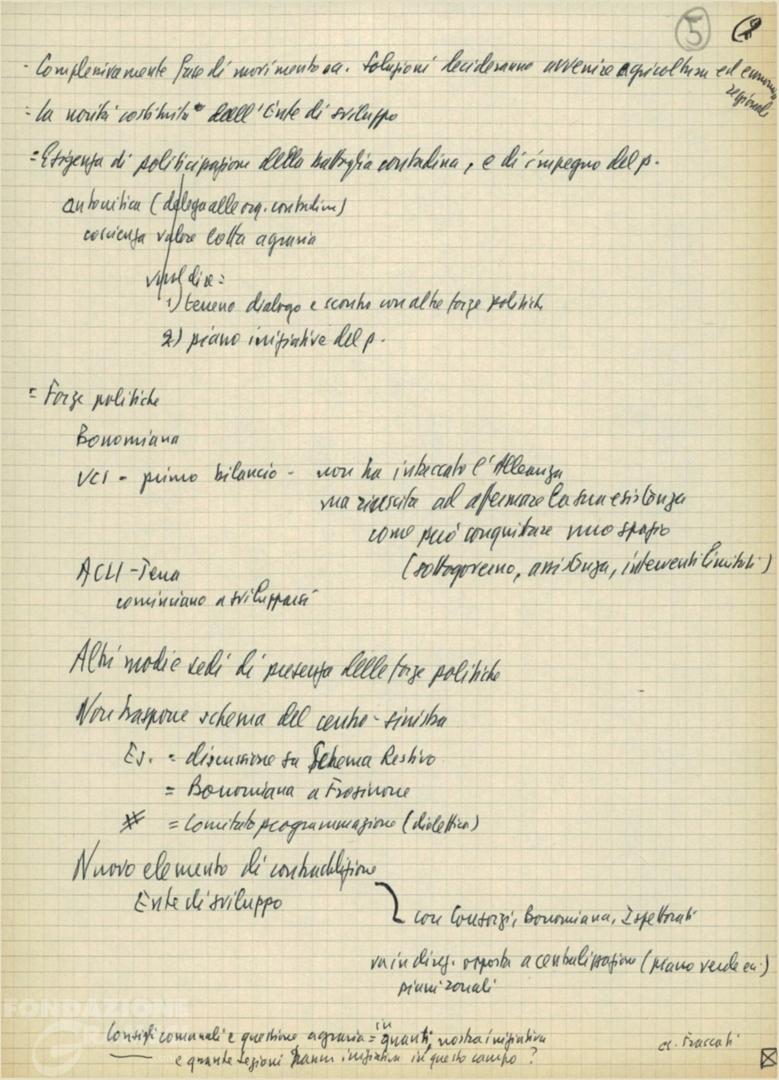 5
- Complessivamente fase di movimento ecc. Soluzioni decideranno avvenire agricoltura ed economia
regionali
= la novità costituita dall'Ente di sviluppo
= Esigenza di politicizzazione della battaglia contadina, e di impegno del p.
autocritica (delega alle org. contadine)
coscienza valore lotta agraria
vuol dire =
1) terreno dialogo e scontro con altre forze politiche
2) piano iniziative del p.
= Forze politiche
Bonomiana
UCI - primo bilancio - non ha intaccato l'Alleanza
ma riuscita ad affermare la sua esistenza
come può conquistare suo spazio
(sottogoverno, assistenza, interventi limitati)
ACLI - Terra
cominciano a svilupparsi
Altri modi e sedi di presenza delle forze politiche
Non trasporre schema del centro-sinistra
Es. = discussione su Schema Restivo
= Bonomiana a Frosinone
= Comitato programmazione (dialettica)
Nuovo elemento di contraddizione
Ente di sviluppo
con Consorzi, Bonomiana, Ispettorati
va in direz. opposta a centralizzazione (piano verde ecc.)
piani zonali
FONDAZIONE
Consigli comunali e questione agraria = in quanti nostra iniziativa
e quante sezioni hanno iniziativa in questo campo?
cfr. Frascati